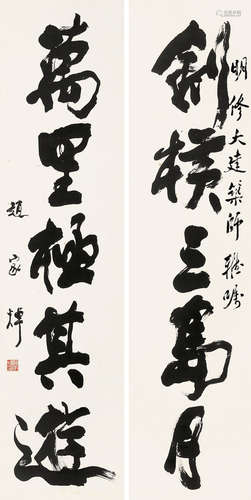 明修大建築師雅囑
三萬月
萬里極其遊
趙家焯